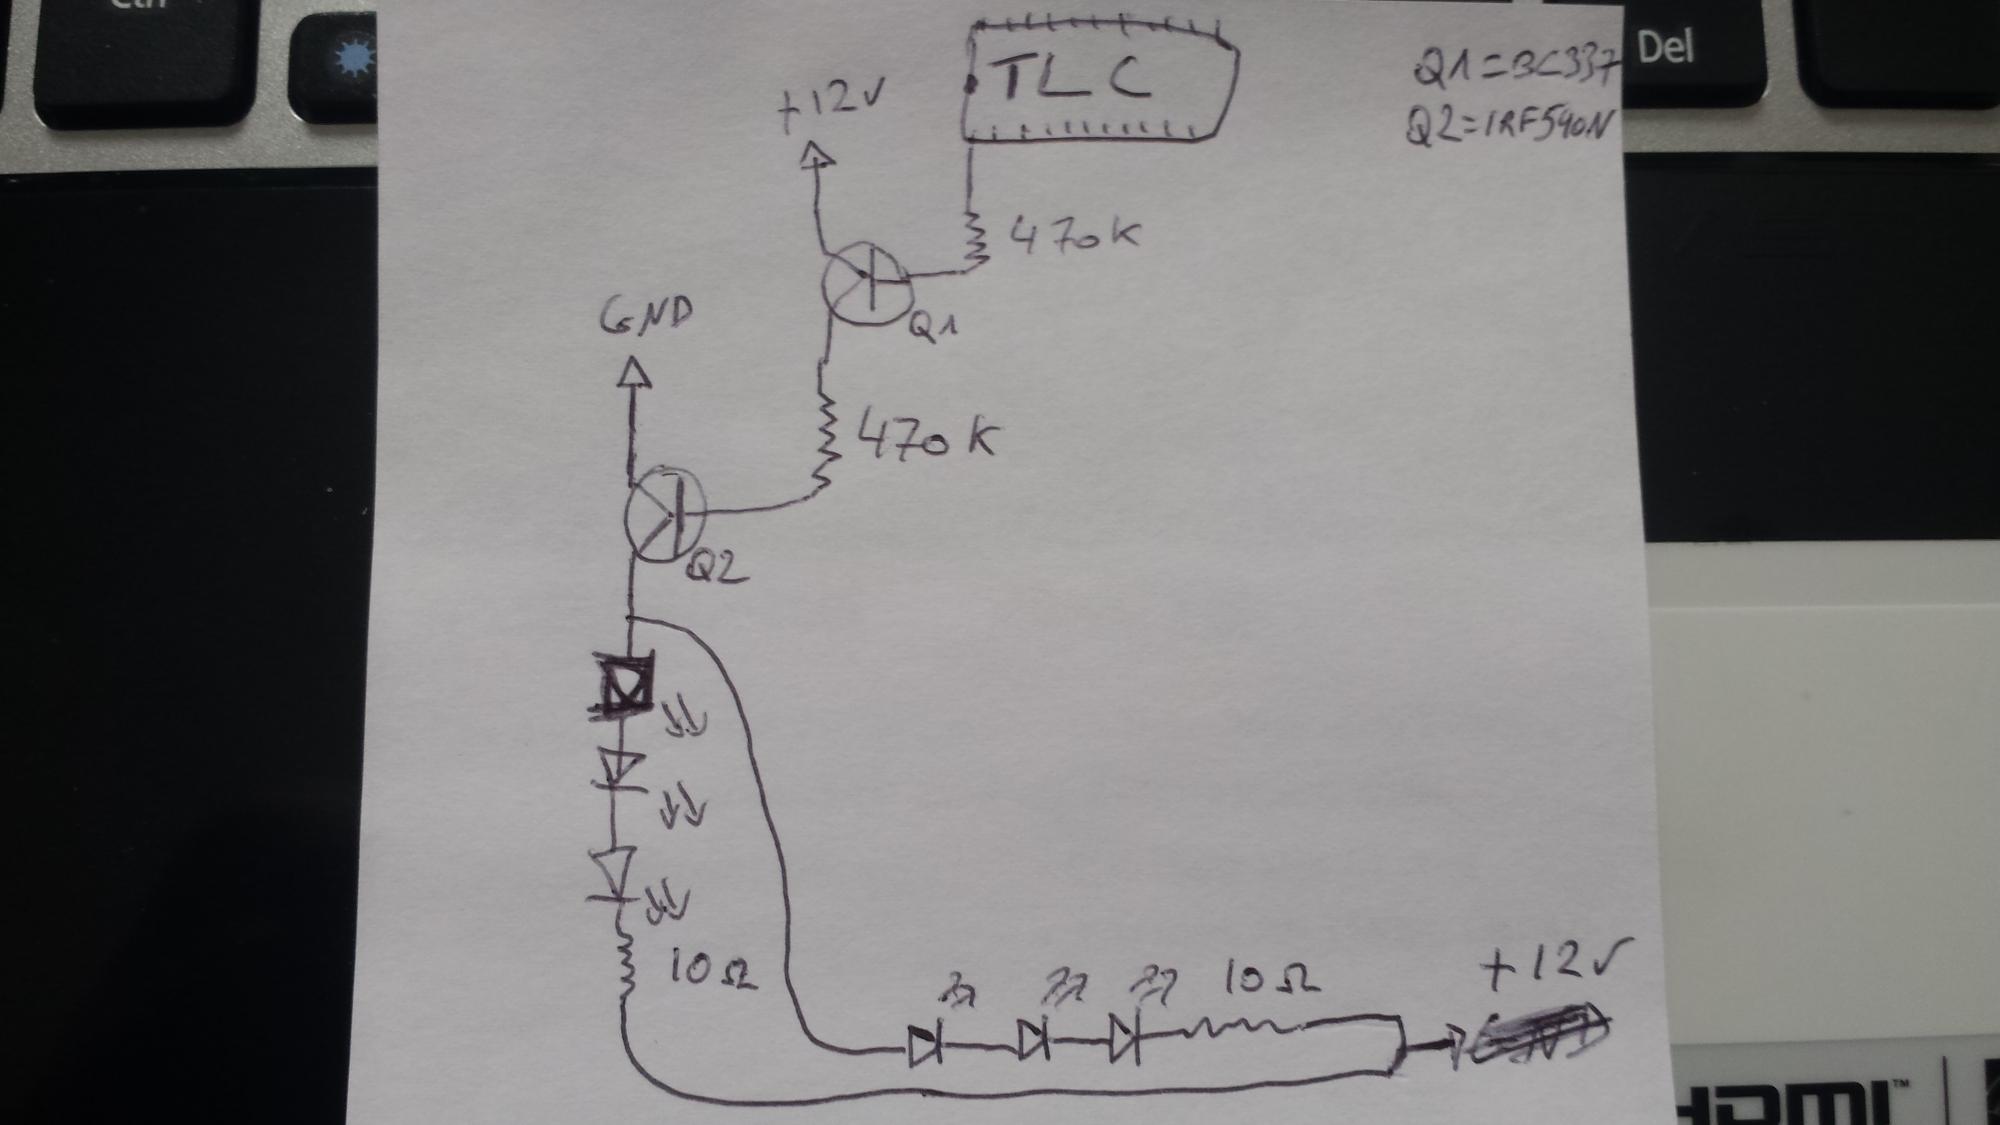 Ctrl
Del
TLC
Q1=BC337
Q2=IRF540N
+12V
470K
Q1
GND
470K
Q2
10Ω
10Ω
+12V
HDMI™